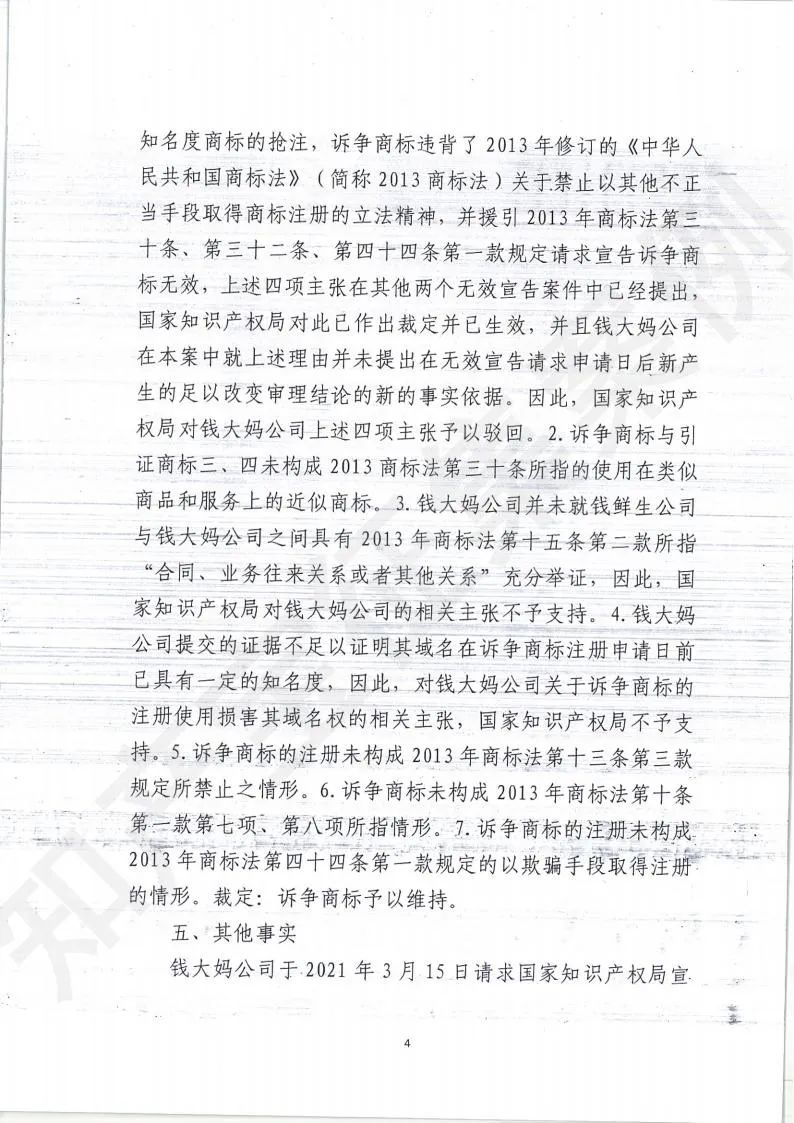 知名度商标的抢注，诉争商标违背了 2013 年修订的《中华人
民共和国商标法》（简称 2013 商标法）关于禁止以其他不正
当手段取得商标注册的立法精神，并援引 2013 年商标法第三
十条、第三十二条、第四十四条第一款规定请求宣告诉争商
标无效，上述四项主张在其他两个无效宣告案件中已经提出，
国家知识产权局对此已作出裁定并已生效，并且钱大妈公司
在本案中就上述理由并未提出在无效宣告请求申请日后新产
生的足以改变审理结论的新的事实依据。因此，国家知识产
权局对钱大妈公司上述四项主张予以驳回。2.诉争商标与引
证商标三、四未构成 2013 商标法第三十条所指的使用在类似
商品和服务上的近似商标。3.钱大妈公司并未就钱鲜生公司
与钱大妈公司之间具有 2013 年商标法第十五条第二款所指
“合同、业务往来关系或者其他关系”充分举证，因此，国
家知识产权局对钱大妈公司的相关主张不予支持。4.钱大妈
公司提交的证据不足以证明其域名在诉争商标注册申请日前
已具有一定的知名度，因此，对钱大妈公司关于诉争商标的
注册使用损害其域名权的相关主张，国家知识产权局不予支
持。5.诉争商标的注册未构成 2013 年商标法第十三条第三款
规定所禁止之情形。6.诉争商标未构成 2013 年商标法第十条
第一款第七项、第八项所指情形。7.诉争商标的注册未构成
2013 年商标法第四十四条第一款规定的以欺骗手段取得注册
的情形。裁定：诉争商标予以维持。
五、其他事实
钱大妈公司于 2021 年 3 月 15 日请求国家知识产权局宣
4